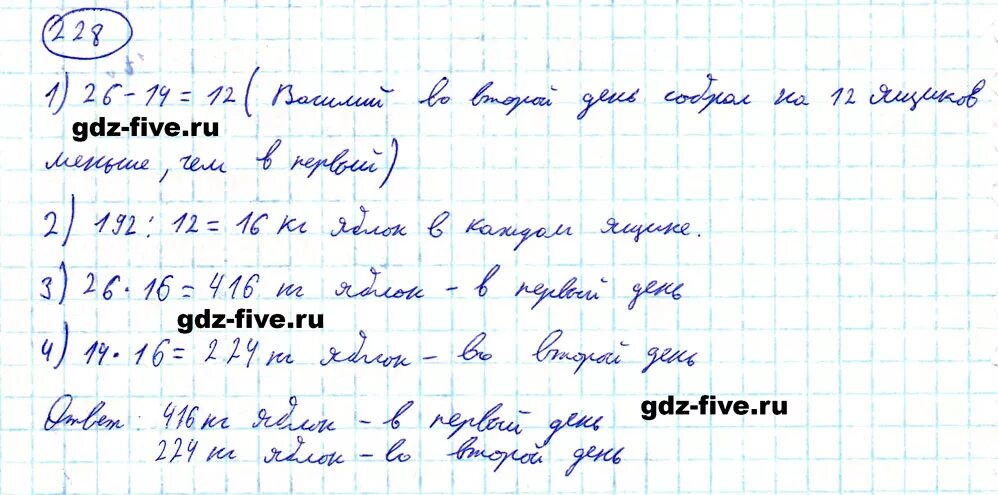 228
1) 26 - 14 = 12 ( Василий во второй день собрал на 12 ящиков
gdz-five.ru
меньше, чем в первый)
2) 192 : 12 = 16 кг яблок в каждом ящике.
3) 26 · 16 = 416 кг яблок - в первый день
gdz-five.ru
4) 14 · 16 = 224 кг яблок - во второй день
Ответ: 416 кг яблок - в первый день
gdz-five.ru
224 кг яблок - во второй день